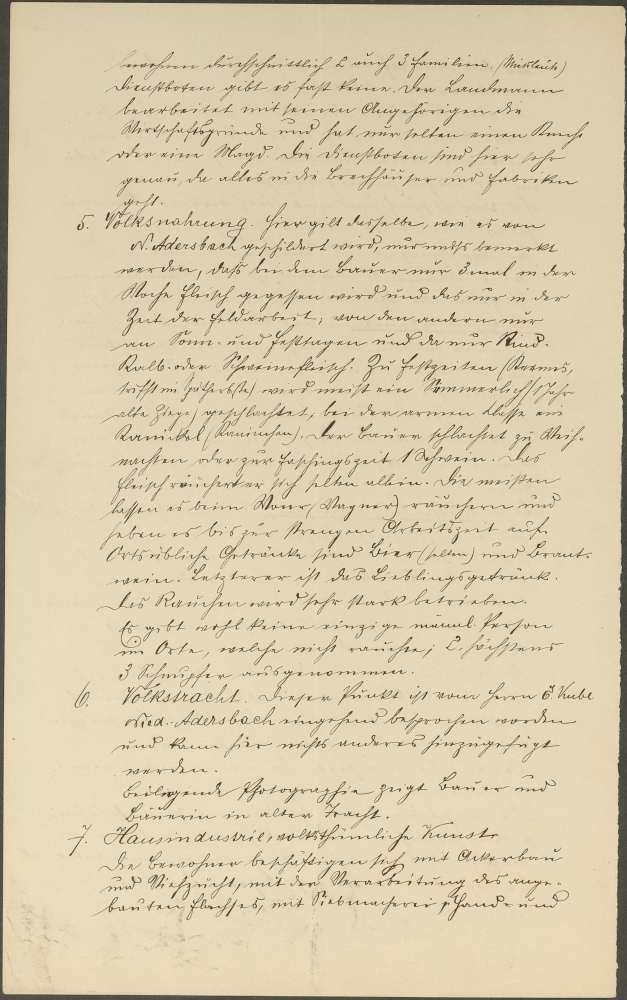 bewohnen durchschnittlich 2 auch 3 Familien. (Mietleute)
Dienstboten gibt es fast keine. Der Landmann
bearbeitet mit seinen Angehörigen die
Wirtschaftsgründe und hat nur selten einen Knecht
oder eine Magd. Die Dienstboten sind hier sehr
genau, da alles in die Brechhäuser und Fabriken
geht.
5. Volksnahrung. Hier gilt dasselbe, wie es von
N. Adersbach geschildert wird, nur muß bemerkt
werden, daß bei dem Bauer nur 3mal in der
Woche Fleisch gegessen wird und das nur in der
Zeit der Feldarbeit; von den andern nur
an Sonn- und Festtagen und da nur Rind-
Kalb- oder Schweinefleisch. Zu Festzeiten (Kermes,
trifft im Spätherbste) wird meist ein Sömmerlich (1 Jahr
alte Ziege) geschlachtet, bei der armen Klasse ein
Kanickel (Kaninchen). Der Bauer schlachtet zu Weih-
nachten oder zur Faschingszeit 1 Schwein. Das
Fleisch räuchert er sich selten allein. Die meisten
lassen es beim Woner (Wagner) räuchern und
heben es bis zur strengen Arbeitszeit auf.
Ortsübliche Getränke sind Bier (selten) und Brant-
wein. Letzterer ist das Lieblingsgetränk.
Das Rauchen wird sehr stark betrieben.
Es gibt wohl keine einzige männl. Person
im Orte, welche nicht rauchte; 2. höchstens
3 Schnupfer ausgenommen.
6. Volkstracht. Dieser Punkt ist vom Herrn Kube
Nied.-Adersbach eingehend besprochen worden
und kann hier nichts anderes hinzugefügt
werden.
Beiliegende Photographie zeigt Bauer und
Bäuerin in alter Tracht.
7. Hausindustrie, volksthümliche Kunst.
Die Bewohner beschäftigen sich mit Ackerbau
und Viehzucht, mit der Verarbeitung des ange-
bauten Flachses, mit Siebmacherei, Hand- und